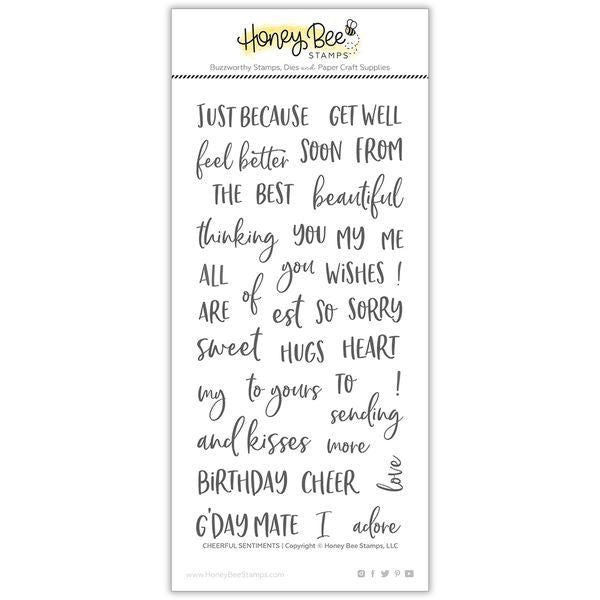 Honey Bee
STAMPS
Buzzworthy Stamps, Dies and Paper Craft Supplies
JUST BECAUSE GET WELL
feel better SOON FROM
THE BEST beautiful
thinking YOU MY ME
ALL you WISHES !
ARE of est SO SORRY
sweet HUGS HEART
my to yours TO !
sending
and kisses more
love
BIRTHDAY CHEER
G'DAY MATE I adore
CHEERFUL SENTIMENTS | Copyright © Honey Bee Stamps, LLC
www.HoneyBeeStamps.com